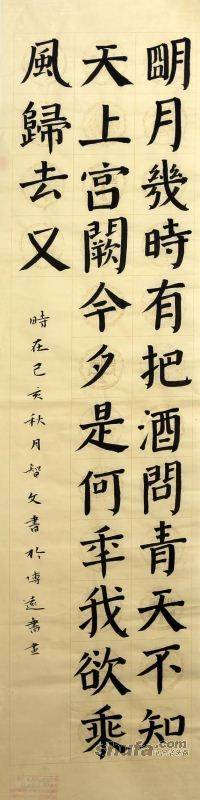 明月幾時有把酒問青天不知
天上宮闕今夕是何年我欲乘
風歸去又
時在己亥秋月智文書於博遠齋畫
shufa.com